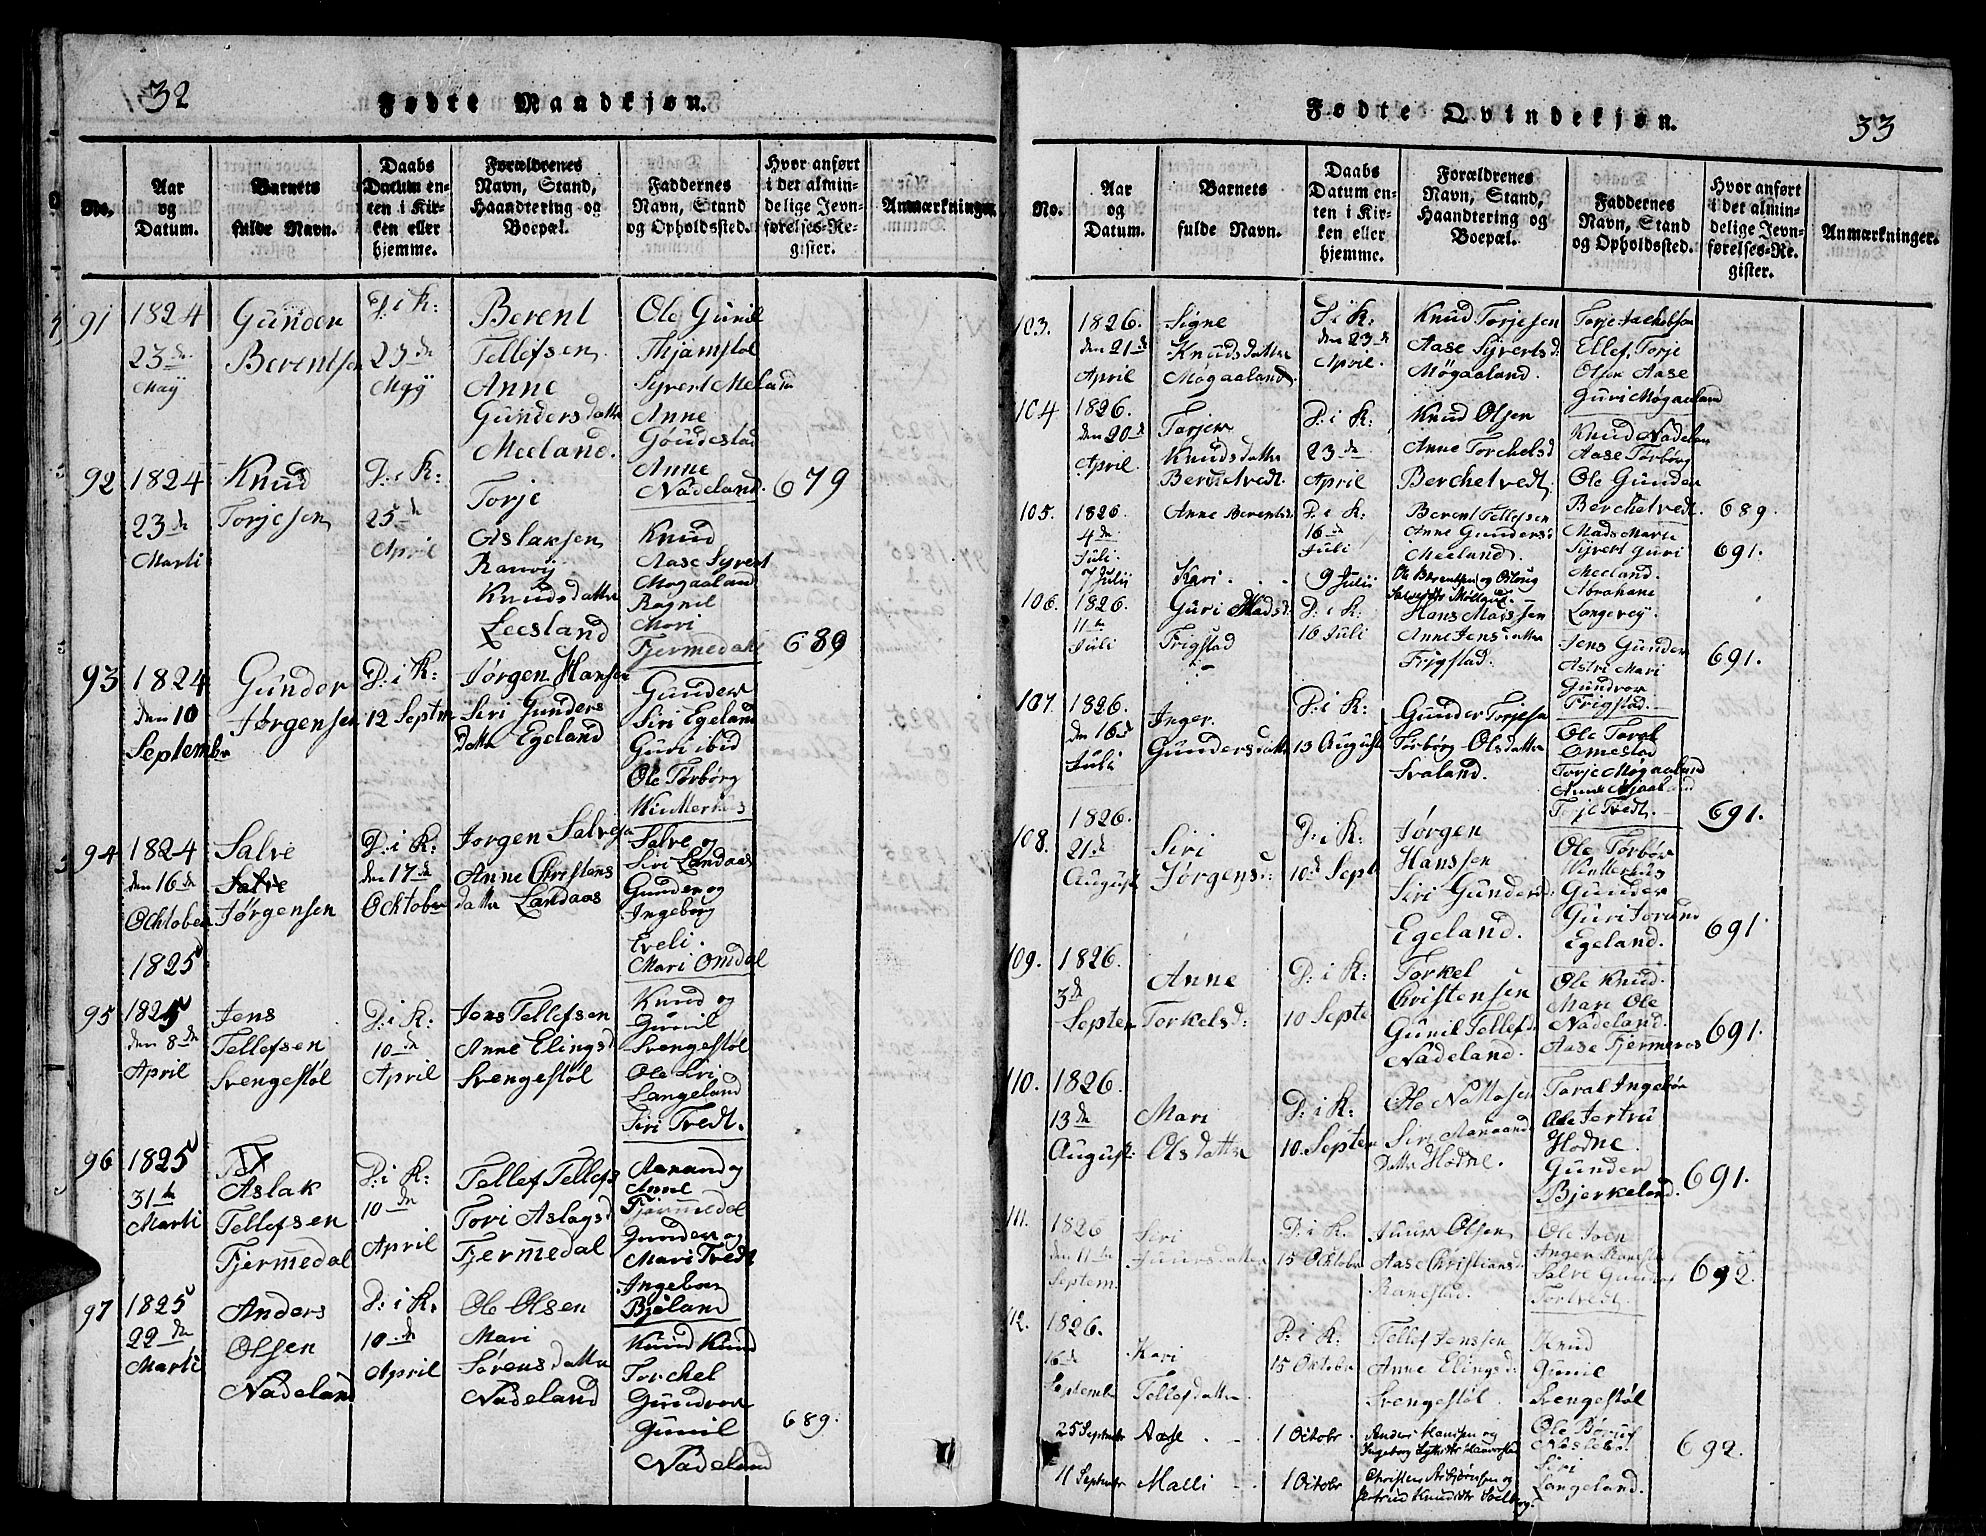 32
Fødte Mandkjøn.
No.
Aar
og
Datum.
Barnets
fulde Navn.
Daabs
Datum en-
ten i Kir-
ken eller
hjemme.
Forældrenes
Navn, Stand,
Haandtering og
Boepæl.
Faddernes
Navn, Stand
og Opholdssted.
Hvor anført
i det almin-
delige Jevn-
førelses-Re-
gister.
Anmærkninger.
91
1824
23de
Maÿ
Gunder
Berentsen
D: i K:
23de
Maÿ
Berent
Tellefsen
Anne
Gundersdatter
Meeland.
Ole Gunil
Thjamstøl
Syvert Meland
Anne
Anne
Nådeland.
679
92
1824
23de
Marti
Knud
Torjesen
D: i K:
25de
April
Torje
Aslaksen
Knudsdatter
Leesland
Knud
Aase Syvert
Møgaaland
Ragnil
Mari
Fjermedal
689
93
1824
den 10
Septembr
Gunder
Jørgensen
D: i K:
12 Septm
Jørgen Hansen
Siri Gunders
datter Egeland
Gunder
Siri Egeland
Guri ibid
Ole Torbørg
94
1824
den 16de
Ochtober
Salve
Salve
Jørgensen
D: i K:
den 17de
Ochtober
Jorgen Salvesen
Anne Christens
datter Landaas
Salve og
Siri Landaas
Gunder og
Ingeborg
Eveli.
Mari Omdal
1825
95
1825
den 8de
April
Jens
Tellefsen
Svengestøl
D: i K:
10de
April
Jens Tellefsen
Anne Elingsd
Svengestøl
Knud og
Gunil
Svengestøl
Ole Siri
Langeland
Siri Tvedt.
96
1825
31te
Marti
Aslak
Tellefsen
Fjermedal
D: i K:
10de
April
Tellef Tellefs
Tori Aslagsd
Fjermedal
Aanand og
Anne
Fjermedal
Gunder og
Mari Tvedt
Ingebor
Bjeland
97
1825
22de
Marti
Anders
Olsen
Nådeland
D: i K:
10de
April
Ole Olsen
Mari
Sørensdatter
Nådeland
Knud Knud
Torchel
Gundvor
Gunil
Nådeland
689.
33
Fødte Qvindekjøn.
No.
Aar
og
Datum.
Barnets
fulde Navn.
Daabs
Datum en-
ten i Kir-
ken eller
hjemme.
Forældrenes
Navn, Stand,
Haandtering og
Boepæl.
Faddernes
Navn, Stand
og Opholdssted.
Hvor anført
i det almin-
delige Jevn-
førelses-Re-
gister.
Anmærkninger.
103.
1826.
den 21de
April
Signe
Knudsdatter
Møgaaland.
D: i K:
den 23de
April.
Knud Torjesen
Aase Syvertsd:
Møgaaland.
Torje Jachobsen
Ellef, Torje
Olsen Aase
Guri Møgaaland
104
1826.
den 20de
April.
Torjer
Knudsdatter
D: i K:
23de
April
Knud Olsen
Anne Torchelsd
Berchetvedt.
Knud Nådeland
Aase Torbørg
Ole Gunder
Berchetvedt.
689.
105.
1826.
4de
Juli.
Anne Berentsd:
D: i K:
16de
Juli
Berent Tellefsen
Anne Gundersd:
Meeland.
Mads Marie
Syvert Guri
Meeland.
691.
7 Julii
Kari.
9 Julii
Ole Berentsen og Aslaug
106.
1826.
11te
Juli
Guri Madsd:
Frigstad
D: i K:
16 Juli
Hans Madssen
Anne Jensdatter
Frigstad.
Abrahane
Langevej.
Jens Gunder
Astri Mari
Gundvor
Frigstad.
691.
107.
1826.
den 16de
Juli
Inger.
Gundersdatter
D: i K:
13 August
Gunder Torjesen
Torbørg Olsdatter
Svaland.
Ole Taral
Omestad
Torje Møgaaland
Torje Tvedt.
691.
108.
1826.
21de
August
Siri
Jørgensd:
D: i K:
10de Sept
Jørgen
Hanssen
Siri Gundersd:
Egeland.
Ole Torbør
Gunder
Guri Torund
Egeland.
691.
109.
1826.
3de
Septem
Anne
Torkelsd:
D: i K:
10 Septe
Torkel
Christensen
Gunil Tellefsd:
Nådeland.
Ole Knud.
Mari Ole
Nådeland.
Aase Fjermeros
691.
110.
1826.
13de
August:
Mari
Olsdatter
D: i K:
10. Septem
Siri Aanaand
datter Hodne.
Taral Ingebor
Ole Jertru
Hodne.
Gunder
Bjerkeland.
691.
111.
1826
den 11te
Septem.
Siri
Juursdatter
D: i K:
15 Ochtobr
Juur Olsen
Aase Christiansd
Ranestad.
Ole Joen
Inger Ranestad
Salve Gunder
Tortvedt.
692.
112.
1826.
16de
Septembr
Kari
Tellefsdatter.
D: i K:
15 Octobr
Tellef Jenssen
Anne Elingsd:
Svengestøl
Knud
Gunil
Svengestøl
25 Septembr
Aase.
1 Octobr
Anders Hansen og
Ole
Siri
Langeland.
692.
11 Septembr
Malli
1 Octobr